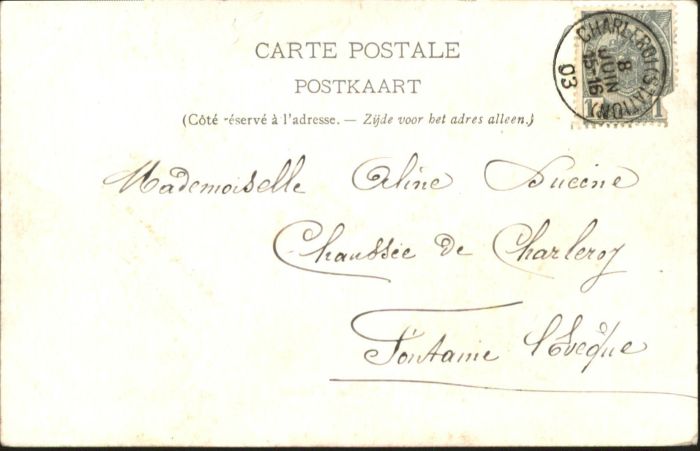 CARTE POSTALE
POSTKAART
(Côté réservé à l'adresse. — Zijde voor het adres alleen.)
CHARLEROI (STATION)
8
JUIN
15-16
03
1
Mademoiselle Aline Ducène
Chaussée de Charleroy
Fontaine l'Evêque